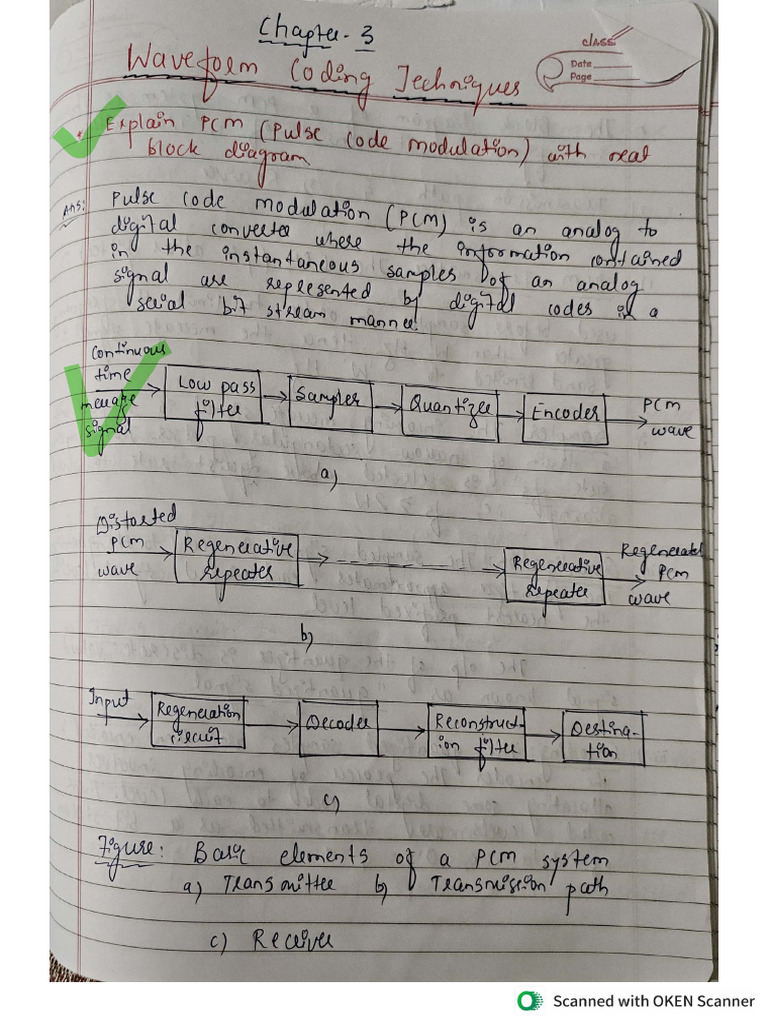 Chapter - 3
CLASS
Date
Page
Waveform Coding Techniques
* Explain PCM (Pulse Code modulation) with neat
block diagram
Ans: Pulse Code modulation (PCM) is an analog to
digital converter where the information contained
in the instantaneous samples of an analog
signal are represented by digital codes in a
serial bit stream manner.
Continuous
time
message
signal
Low pass
filter
Sampler
Quantizer
Encoder
PCM
wave
a)
Distorted
PCM
wave
Regenerative
repeater
Regenerative
repeater
Regenerated
PCM
wave
b)
Input
Regeneration
circuit
Decoder
Reconstruct-
ion filter
Destina-
tion
c)
Figure: Basic elements of a PCM system
a) Transmitter b) Transmission path
c) Receiver
Scanned with OKEN Scanner